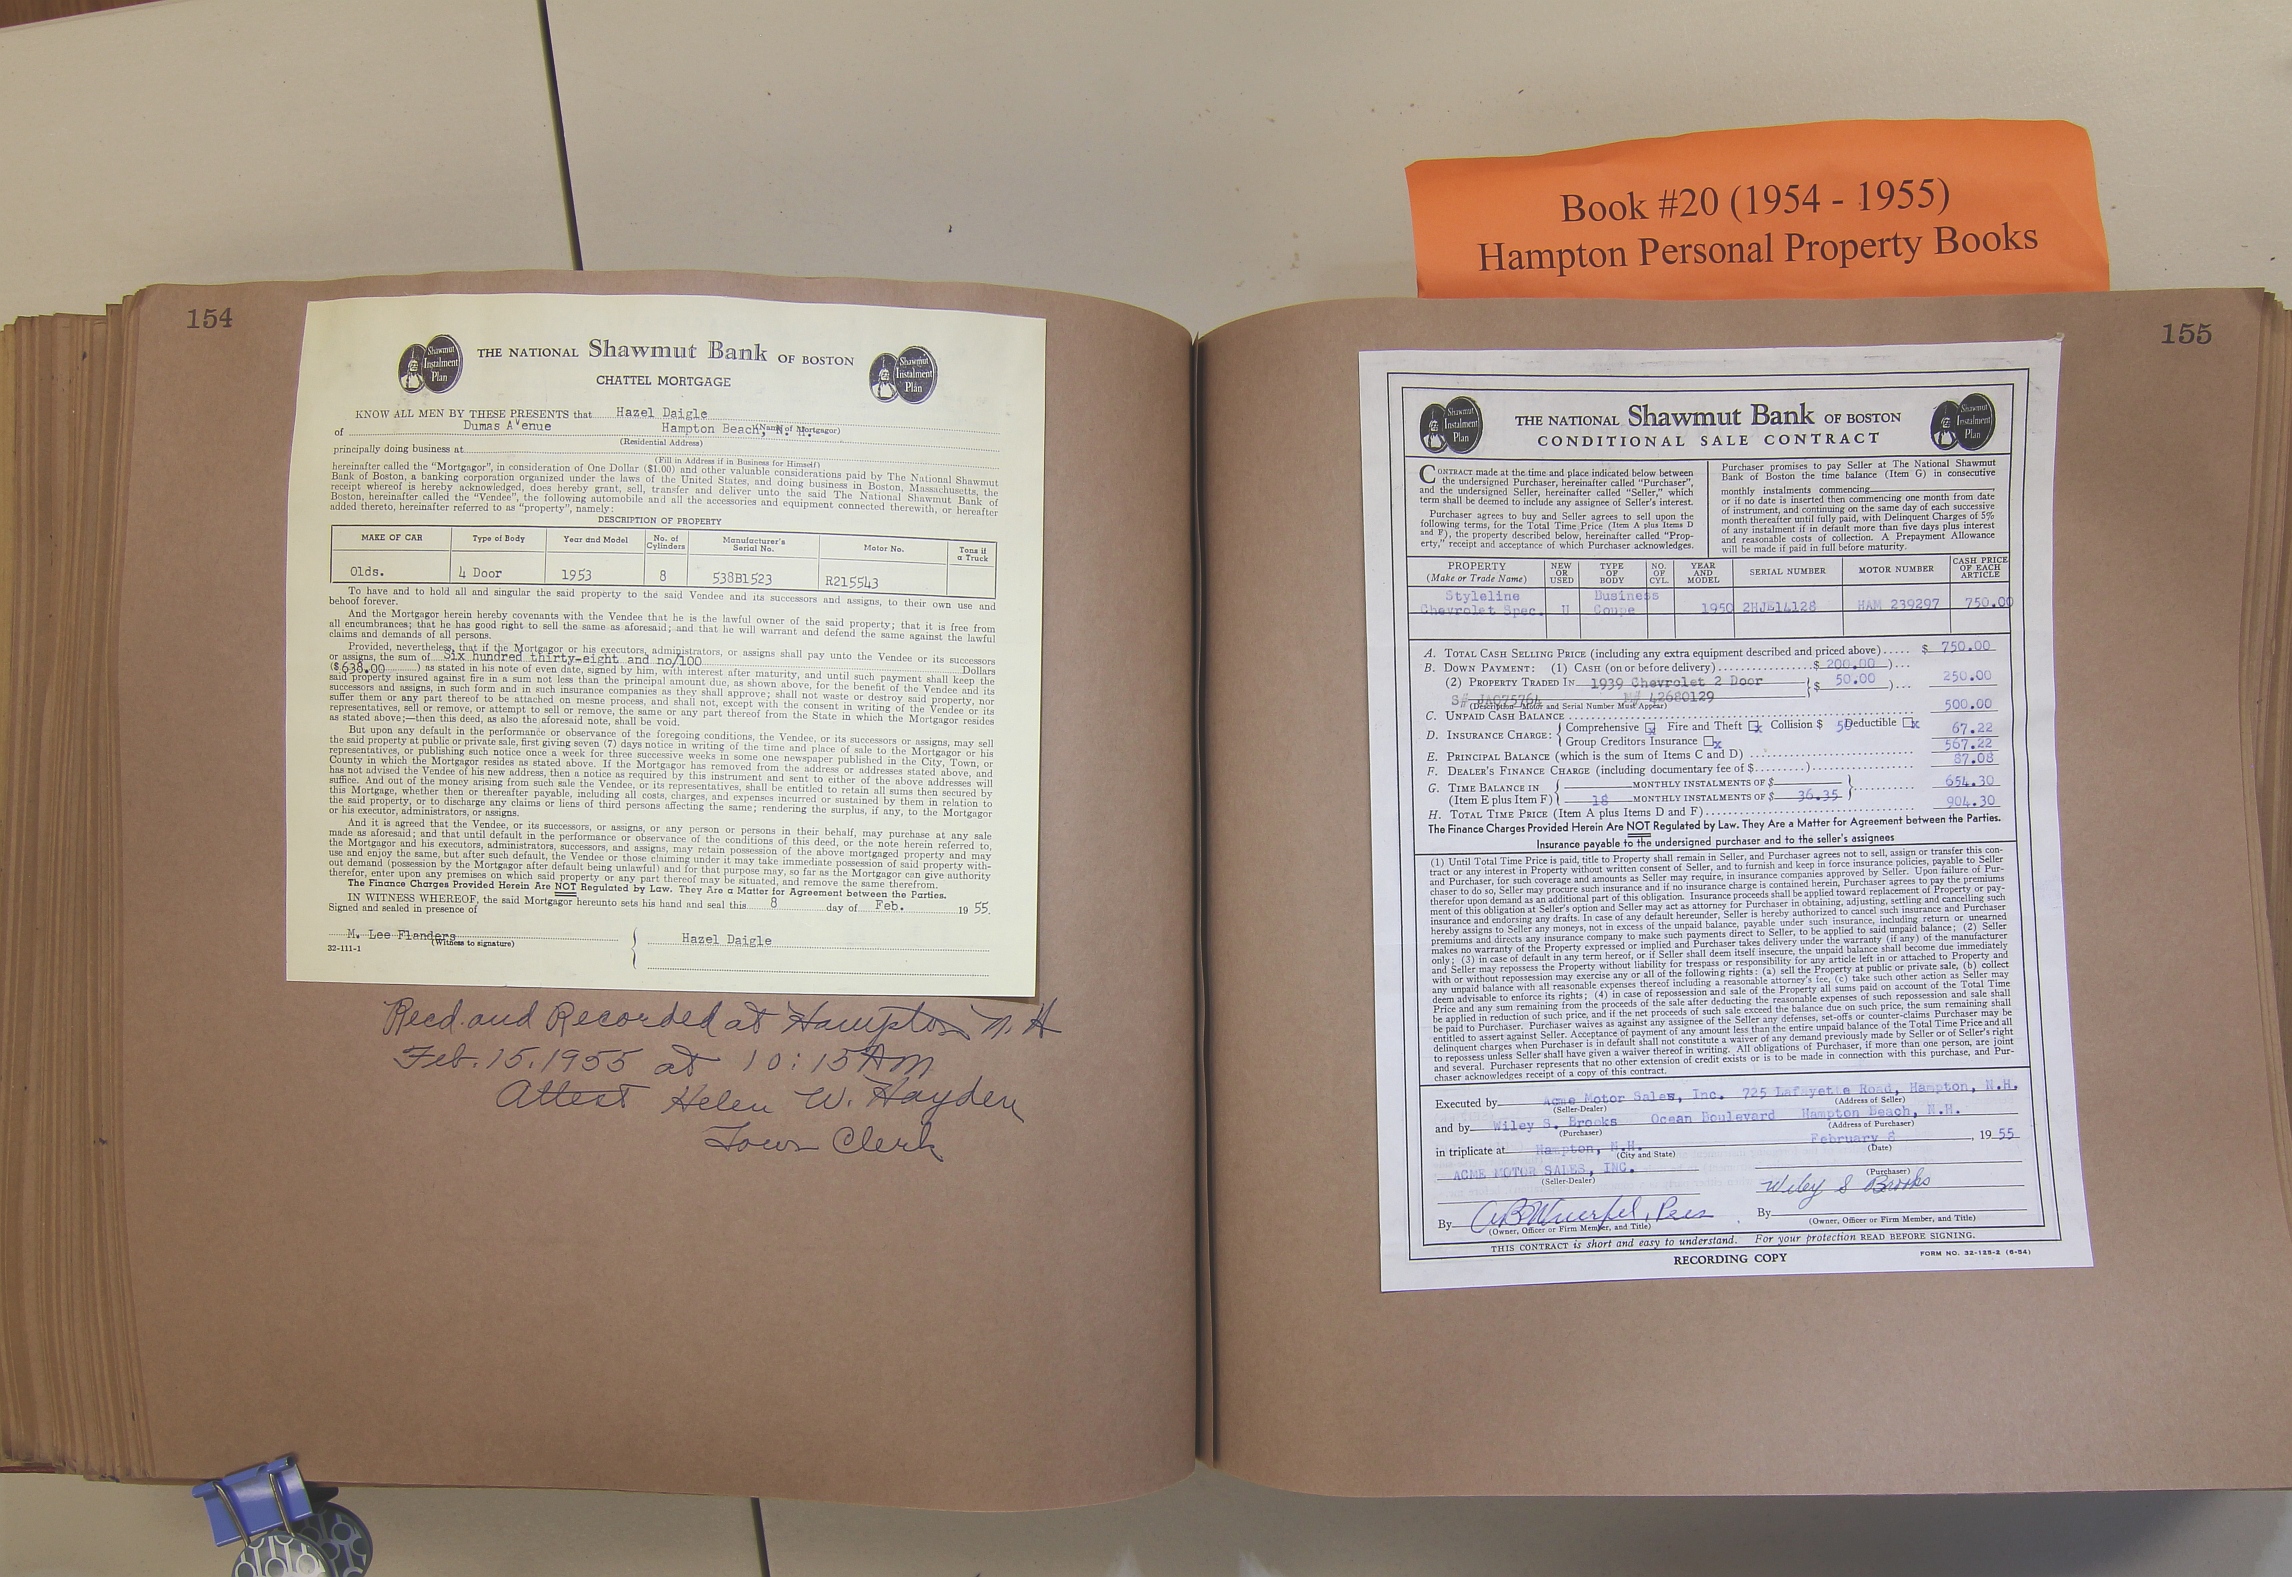 Book #20 (1954 - 1955)
Hampton Personal Property Books
154
Shawmut
Instalment
Plan
THE NATIONAL Shawmut Bank OF BOSTON
CHATTEL MORTGAGE
Shawmut
Instalment
Plan
KNOW ALL MEN BY THESE PRESENTS that Hazel Daigle
(Name of Mortgagor)
of Dumas Avenue Hampton Beach, N. H.
(Residential Address)
principally doing business at
(Fill in Address if in Business for Himself)
hereinafter called the "Mortgagor", in consideration of One Dollar ($1.00) and other valuable considerations paid by The National Shawmut
Bank of Boston, a banking corporation organized under the laws of the United States, and doing business in Boston, Massachusetts, the
receipt whereof is hereby acknowledged, does hereby grant, sell, transfer and deliver unto the said The National Shawmut Bank of
Boston, hereinafter called the "Vendee", the following automobile and all the accessories and equipment connected therewith, or hereafter
added thereto, hereinafter referred to as "property", namely:
DESCRIPTION OF PROPERTY
MAKE OF CAR Type of Body Year and Model No. of Cylinders Manufacturer's Serial No. Motor No. Tons if a Truck
Olds. 4 Door 1953 8 538B1523 R215543
To have and to hold all and singular the said property to the said Vendee and its successors and assigns, to their own use and
behoof forever.
And the Mortgagor herein hereby covenants with the Vendee that he is the lawful owner of the said property; that it is free from
all encumbrances; that he has good right to sell the same as aforesaid; and that he will warrant and defend the same against the lawful
claims and demands of all persons.
Provided, nevertheless, that if the Mortgagor or his executors, administrators, or assigns shall pay unto the Vendee or its successors
or assigns, the sum of Six hundred thirty-eight and no/100 Dollars
($638.00) as stated in his note of even date, signed by him, with interest after maturity, and until such payment shall keep the
said property insured against fire in a sum not less than the principal amount due, as shown above, for the benefit of the Vendee and its
successors and assigns, in such form and in such insurance companies as they shall approve; shall not waste or destroy said property, nor
suffer them or any part thereof to be attached on mesne process, and shall not, except with the consent in writing of the Vendee or its
representatives, sell or remove, or attempt to sell or remove, the same or any part thereof from the State in which the Mortgagor resides
as stated above;—then this deed, as also the aforesaid note, shall be void.
But upon any default in the performance or observance of the foregoing conditions, the Vendee, or its successors or assigns, may sell
the said property at public or private sale, first giving seven (7) days notice in writing of the time and place of sale to the Mortgagor or his
representatives, or publishing such notice once a week for three successive weeks in some one newspaper published in the City, Town, or
County in which the Mortgagor resides as stated above. If the Mortgagor has removed from the address or addresses stated above, and
has not advised the Vendee of his new address, then a notice as required by this instrument and sent to either of the above addresses will
suffice. And out of the money arising from such sale the Vendee, or its representatives, shall be entitled to retain all sums then secured by
this Mortgage, whether then or thereafter payable, including all costs, charges, and expenses incurred or sustained by them in relation to
the said property, or to discharge any claims or liens of third persons affecting the same; rendering the surplus, if any, to the Mortgagor
or his executor, administrators, or assigns.
And it is agreed that the Vendee, or its successors, or assigns, or any person or persons in their behalf, may purchase at any sale
made as aforesaid; and that until default in the performance or observance of the conditions of this deed, or the note herein referred to,
the Mortgagor and his executors, administrators, successors, and assigns, may retain possession of the above mortgaged property and may
use and enjoy the same, but after such default, the Vendee or those claiming under it may take immediate possession of said property with-
out demand (possession by the Mortgagor after default being unlawful) and for that purpose may, so far as the Mortgagor can give authority
therefor, enter upon any premises on which said property or any part thereof may be situated, and remove the same therefrom.
The Finance Charges Provided Herein Are NOT Regulated by Law. They Are a Matter for Agreement between the Parties.
IN WITNESS WHEREOF, the said Mortgagor hereunto sets his hand and seal this 8 day of Feb. 19 55.
Signed and sealed in presence of
M. Lee Flanders
(Witness to signature)
Hazel Daigle
32-111-1
Recd. and Recorded at Hampton N. H
Feb. 15. 1955 at 10:15 AM
Attest Helen W. Hayden
Town Clerk
155
Shawmut
Instalment
Plan
THE NATIONAL Shawmut Bank OF BOSTON
CONDITIONAL SALE CONTRACT
Shawmut
Instalment
Plan
CONTRACT made at the time and place indicated below between
the undersigned Purchaser, hereinafter called "Purchaser",
and the undersigned Seller, hereinafter called "Seller," which
term shall be deemed to include any assignee of Seller's interest.
Purchaser agrees to buy and Seller agrees to sell upon the
following terms, for the Total Time Price (Item A plus Items D
and F), the property described below, hereinafter called "Prop-
erty," receipt and acceptance of which Purchaser acknowledges.
Purchaser promises to pay Seller at The National Shawmut
Bank of Boston the time balance (Item G) in consecutive
monthly instalments commencing
or if no date is inserted then commencing one month from date
of instrument, and continuing on the same day of each successive
month thereafter until fully paid, with Delinquent Charges of 5%
of any instalment if in default more than five days plus interest
and reasonable costs of collection. A Prepayment Allowance
will be made if paid in full before maturity.
PROPERTY (Make or Trade Name) NEW OR USED TYPE OF BODY NO. OF CYL. YEAR AND MODEL SERIAL NUMBER MOTOR NUMBER CASH PRICE OF EACH ARTICLE
Styleline Business
Chevrolet Spec. U Coupe 1950 2HJE14128 HAM 239297 750.00
A. TOTAL CASH SELLING PRICE (including any extra equipment described and priced above) $ 750.00
B. DOWN PAYMENT: (1) CASH (on or before delivery) $ 200.00 )
(2) PROPERTY TRADED IN 1939 Chevrolet 2 Door $ 50.00 ) 250.00
S# JA075764 M# 42680129
(Description—Motor and Serial Number Must Appear)
C. UNPAID CASH BALANCE 500.00
D. INSURANCE CHARGE: Comprehensive x Fire and Theft x Collision $ 50 Deductible x
Group Creditors Insurance x 67.22
E. PRINCIPAL BALANCE (which is the sum of Items C and D) 567.22
F. DEALER'S FINANCE CHARGE (including documentary fee of $ ) 87.08
G. TIME BALANCE IN MONTHLY INSTALMENTS OF $
(Item E plus Item F) 18 MONTHLY INSTALMENTS OF $ 36.35 654.30
H. TOTAL TIME PRICE (Item A plus Items D and F) 904.30
The Finance Charges Provided Herein Are NOT Regulated by Law. They Are a Matter for Agreement between the Parties.
Insurance payable to the undersigned purchaser and to the seller's assignees
(1) Until Total Time Price is paid, title to Property shall remain in Seller, and Purchaser agrees not to sell, assign or transfer this con-
tract or any interest in Property without written consent of Seller, and to furnish and keep in force insurance policies, payable to Seller
and Purchaser, for such coverage and amounts as Seller may require, in insurance companies approved by Seller. Upon failure of Pur-
chaser to do so, Seller may procure such insurance and if no insurance charge is contained herein, Purchaser agrees to pay the premiums
therefor upon demand as an additional part of this obligation. Insurance proceeds shall be applied toward replacement of Property or pay-
ment of this obligation at Seller's option and Seller may act as attorney for Purchaser in obtaining, adjusting, settling and cancelling such
insurance and endorsing any drafts. In case of any default hereunder, Seller is hereby authorized to cancel such insurance and Purchaser
hereby assigns to Seller any moneys, not in excess of the unpaid balance, payable under such insurance, including return or unearned
premiums and directs any insurance company to make such payments direct to Seller, to be applied to said unpaid balance; (2) Seller
makes no warranty of the Property expressed or implied and Purchaser takes delivery under the warranty (if any) of the manufacturer
only; (3) in case of default in any term hereof, or if Seller shall deem itself insecure, the unpaid balance shall become due immediately
and Seller may repossess the Property without liability for trespass or responsibility for any article left in or attached to Property and
with or without repossession may exercise any or all of the following rights: (a) sell the Property at public or private sale, (b) collect
any unpaid balance with all reasonable expenses thereof including a reasonable attorney's fee, (c) take such other action as Seller may
deem advisable to enforce its rights; (4) in case of repossession and sale of the Property all sums paid on account of the Total Time
Price and any sum remaining from the proceeds of the sale after deducting the reasonable expenses of such repossession and sale shall
be applied in reduction of such price, and if the net proceeds of such sale exceed the balance due on such price, the sum remaining shall
be paid to Purchaser. Purchaser waives as against any assignee of the Seller any defenses, set-offs or counter-claims Purchaser may be
entitled to assert against Seller. Acceptance of payment of any amount less than the entire unpaid balance of the Total Time Price and all
delinquent charges when Purchaser is in default shall not constitute a waiver of any demand previously made by Seller or of Seller's right
to repossess unless Seller shall have given a waiver thereof in writing. All obligations of Purchaser, if more than one person, are joint
and several. Purchaser represents that no other extension of credit exists or is to be made in connection with this purchase, and Pur-
chaser acknowledges receipt of a copy of this contract.
Executed by Acme Motor Sales, Inc. 725 Lafayette Road, Hampton, N.H.
(Seller-Dealer) (Address of Seller)
and by Wiley S. Brooks Ocean Boulevard Hampton Beach, N.H.
(Purchaser) (Address of Purchaser)
in triplicate at Hampton, N.H. February 8, 19 55
(City and State) (Date)
ACME MOTOR SALES, INC.
(Seller-Dealer) (Purchaser)
Wiley S Brooks
By , Pres By
(Owner, Officer or Firm Member, and Title) (Owner, Officer or Firm Member, and Title)
THIS CONTRACT is short and easy to understand. For your protection READ BEFORE SIGNING.
RECORDING COPY
FORM NO. 32-125-2 (6-54)